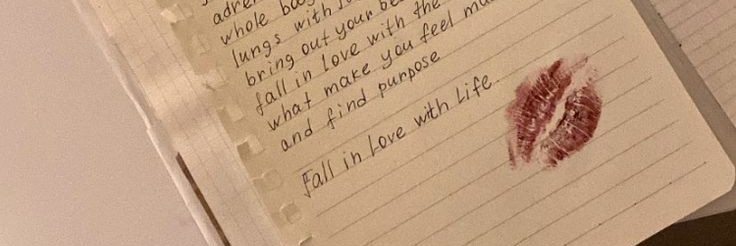 whole
lungs with
bring out your
fall in love with the
what make you feel
and find purpose
Fall in Love with Life